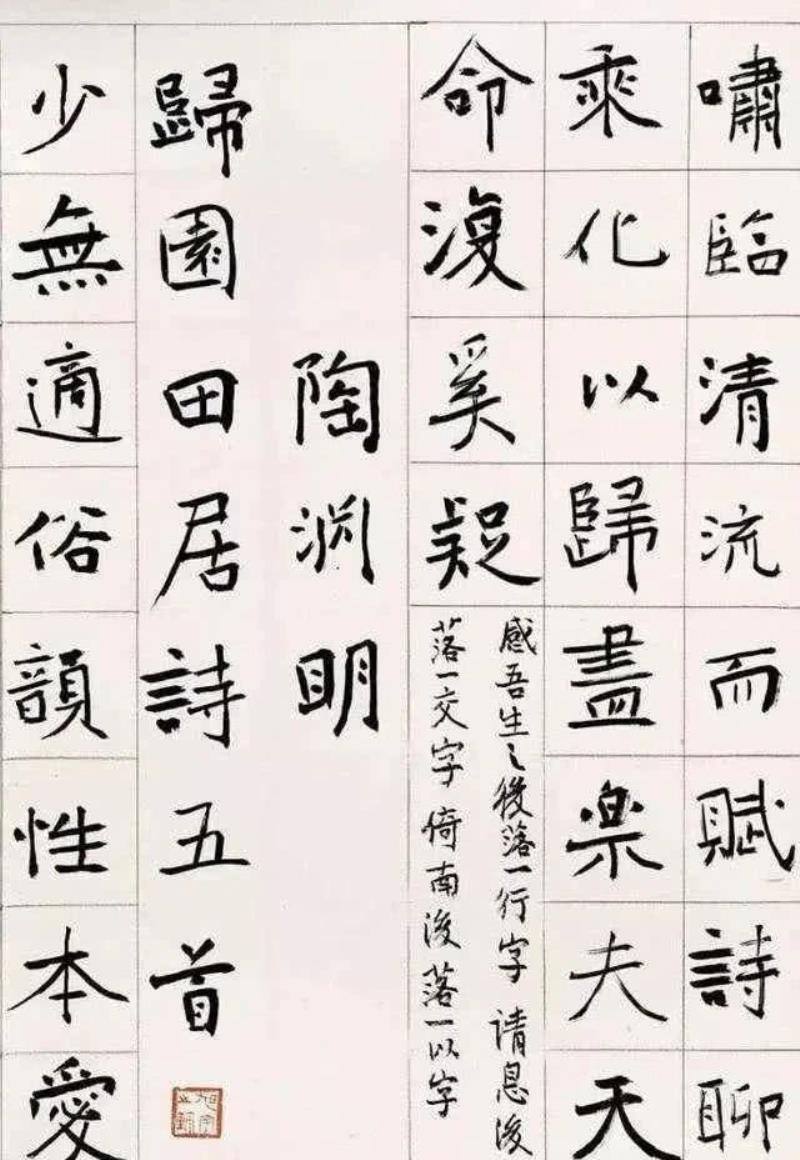 嘯臨清流而賦詩聊
乘化以歸盡樂夫天
命復奚疑
感吾生之後落一行字 请息後
落一交字 倚南後落一以字
陶渊明
歸園田居詩五首
少無適俗韻性本愛